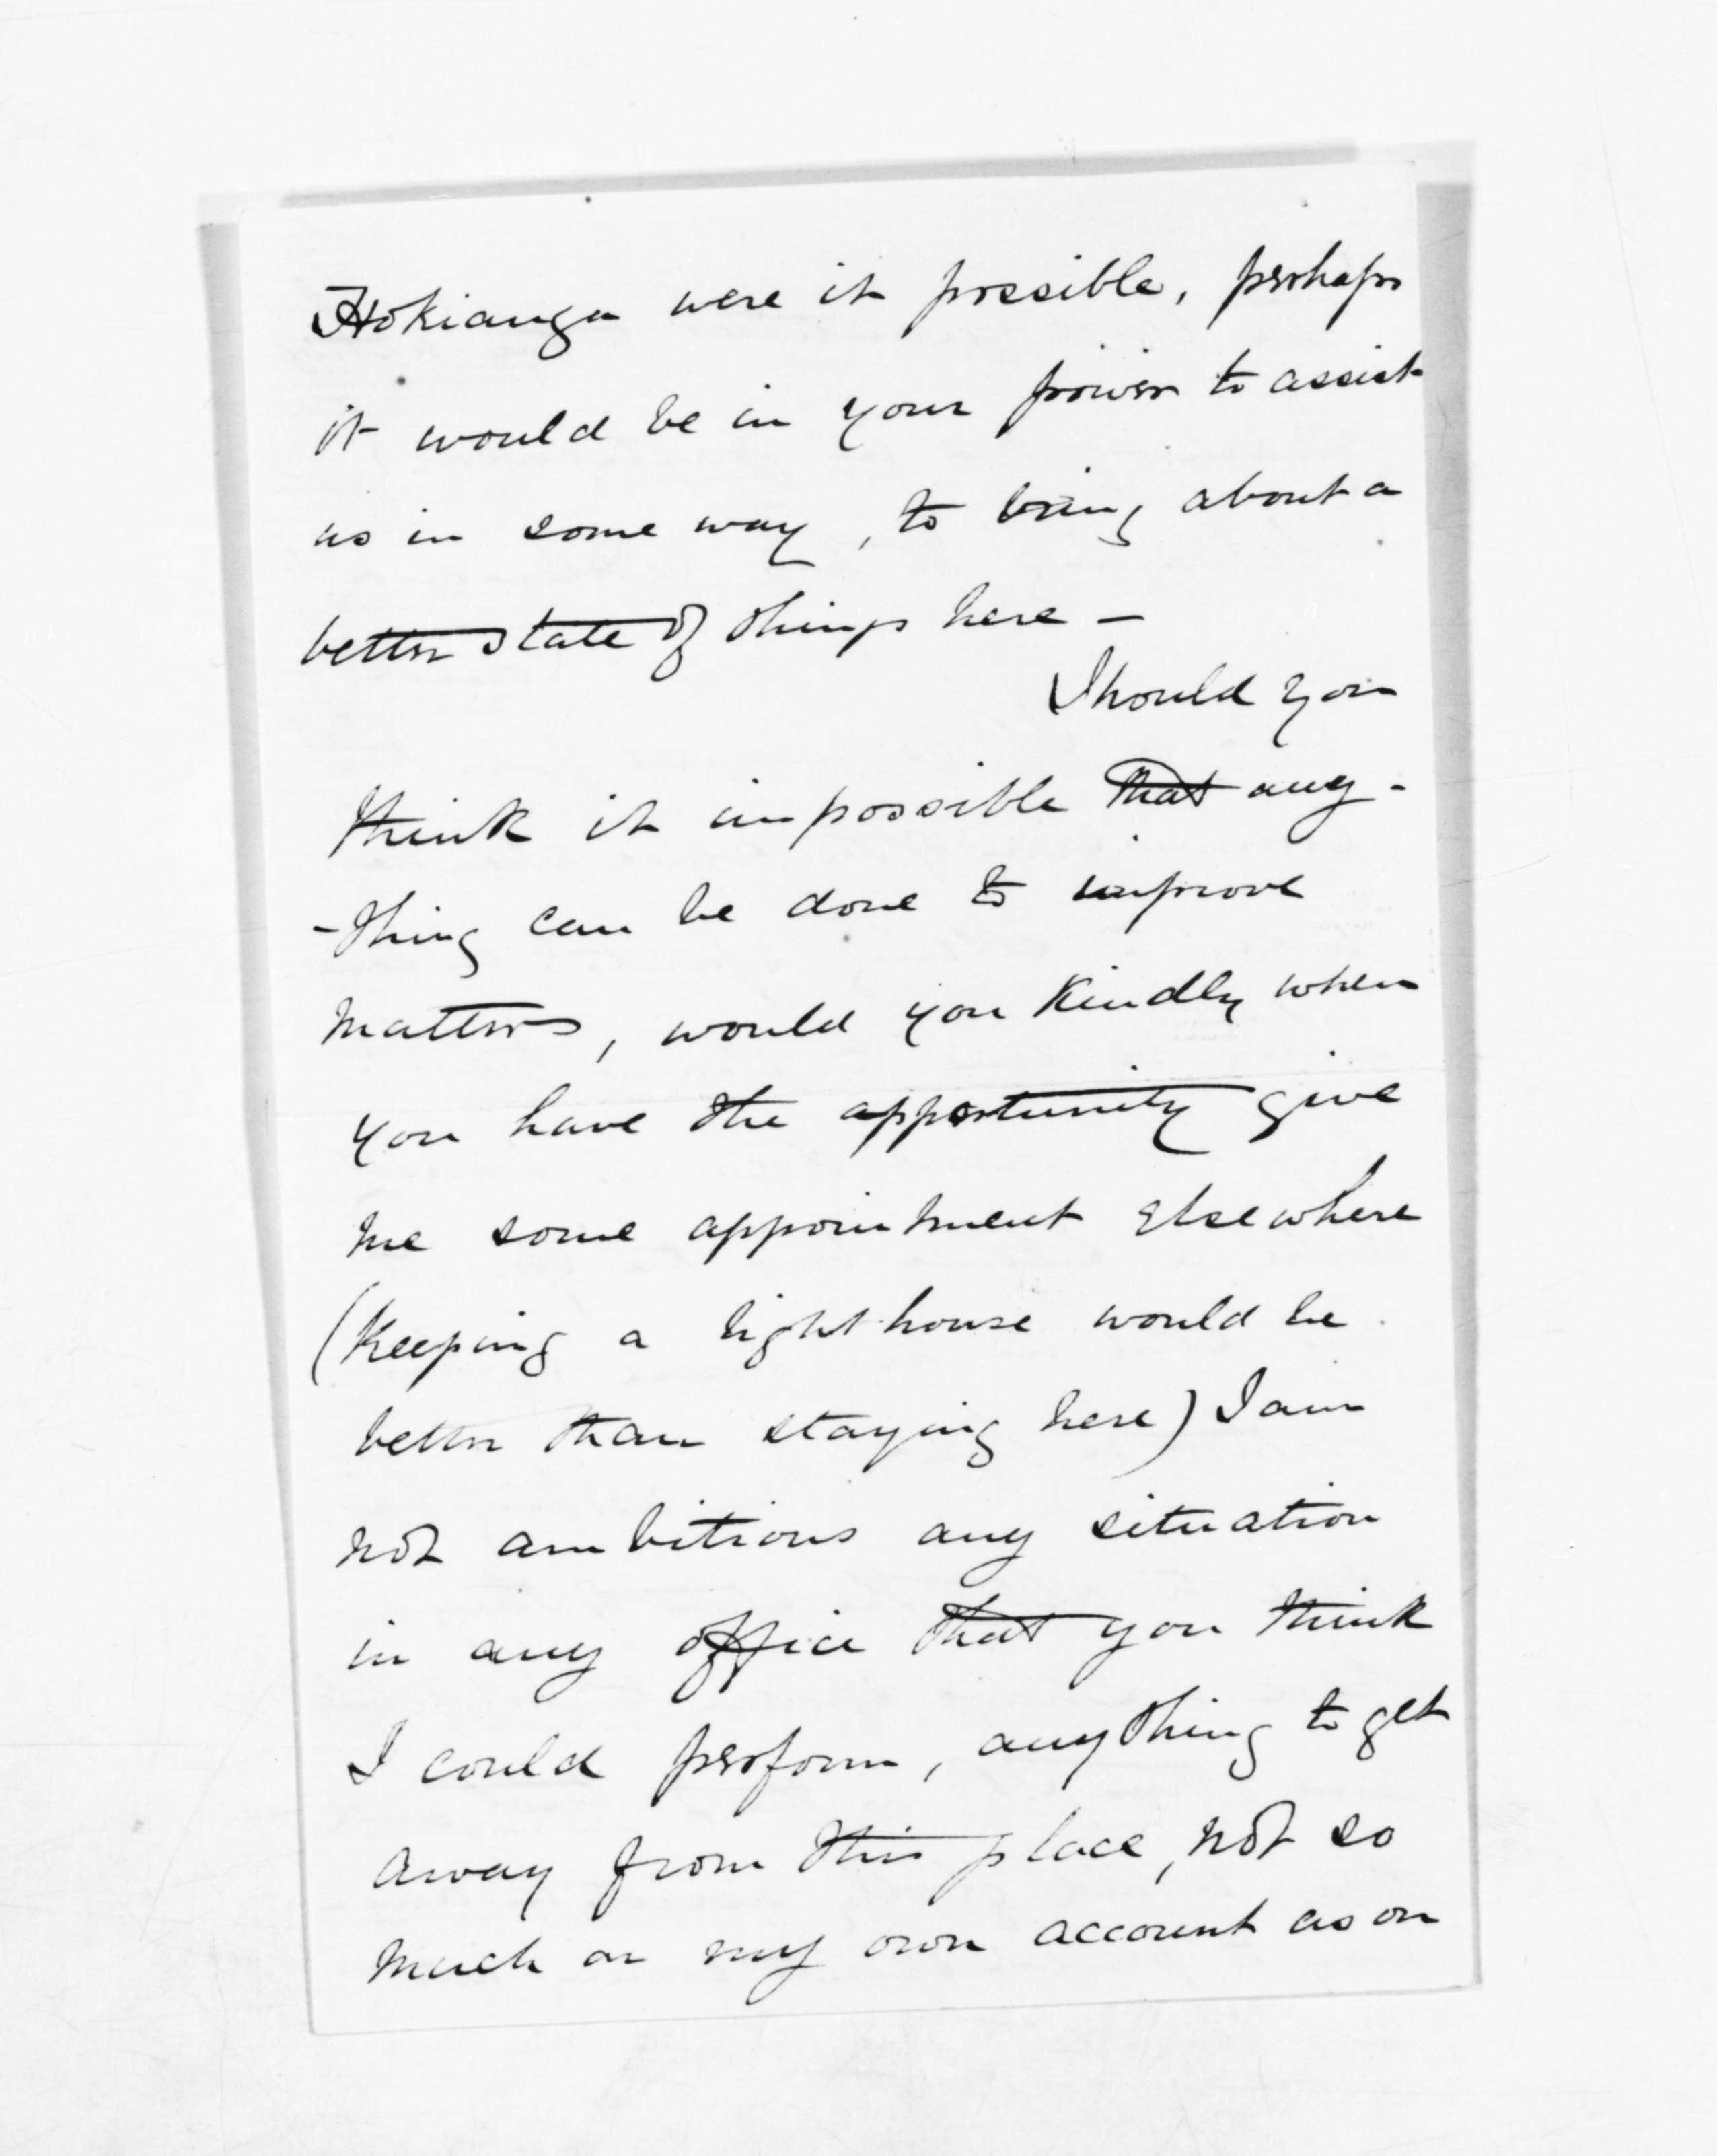 Hokianga were it possible, perhaps
it would be in your power to assist
us in some way, to bring about a
better state of things here —
Should you
think it impossible that any-
-thing can be done to improve
matters, would you kindly when
you have the opportunity give
me some appointment elsewhere
(Keeping a lighthouse would be
better than staying here) I am
not ambitious any situation
in any office that you think
I could perform, anything to get
away from this place, not so
much on my own account as on